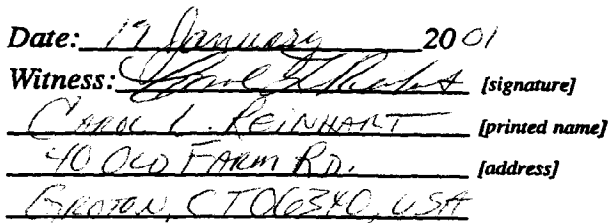 Date: 19 January 2001
Witness: Carol L. Reinhart [signature]
CAROL L. REINHART [printed name]
40 OLD FARM RD. [address]
GROTON, CT 06340, USA